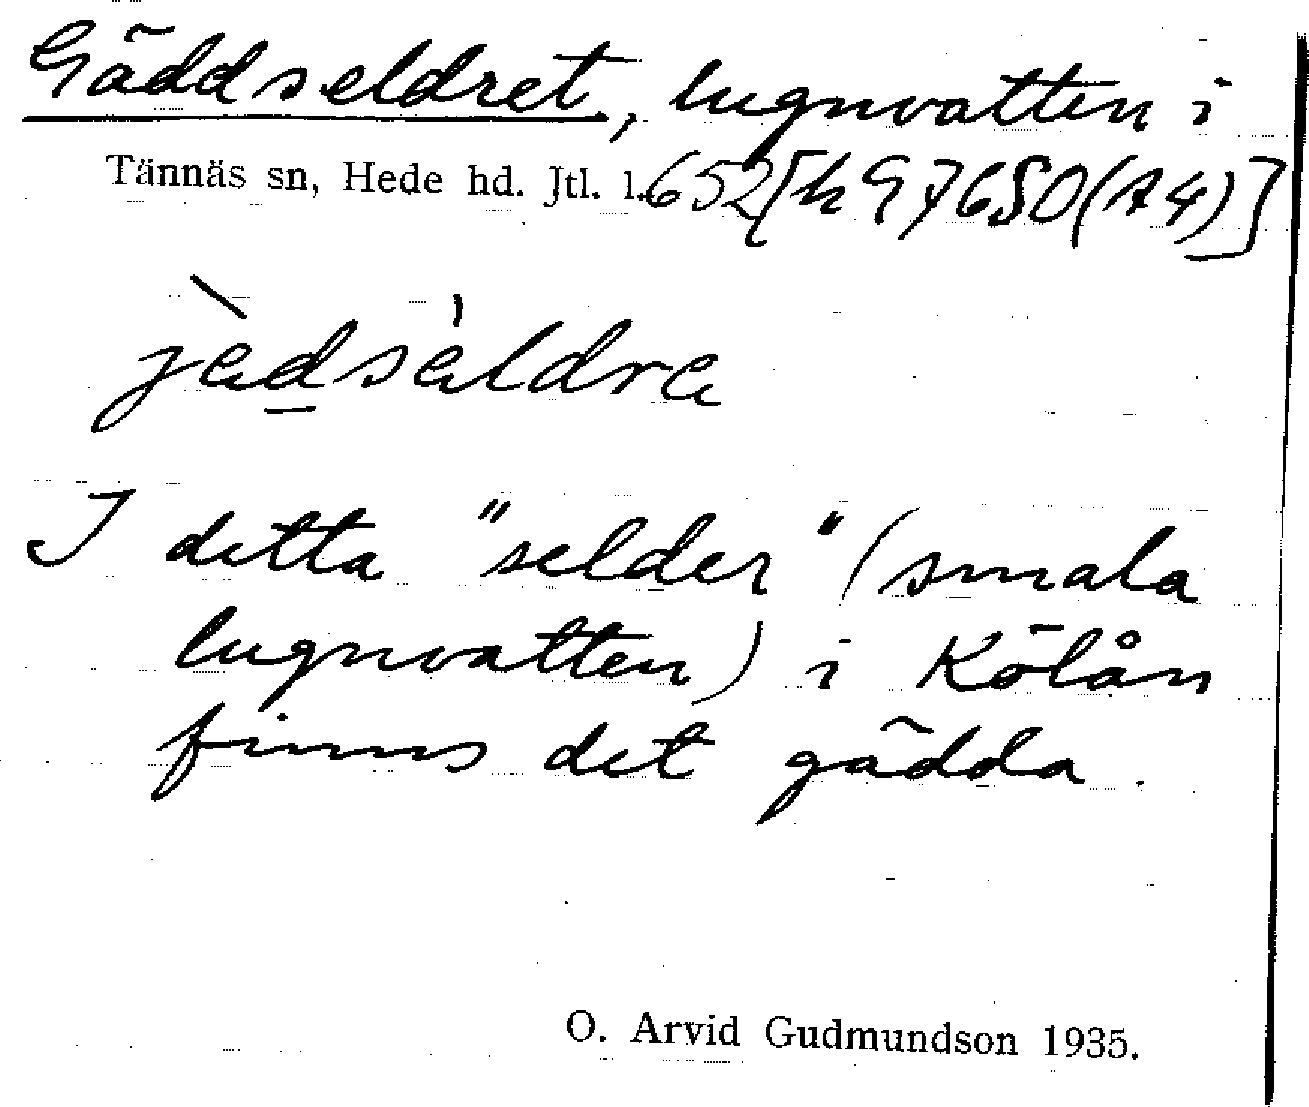 Gäddseldret, lugnvatten i
Tännäs sn, Hede hd. Jtl. l. 652[h 97650(A4)]
jèdsèldra
I detta "selder" (smala
lugnvatten) i Kölån
finns det gädda.
O. Arvid Gudmundson 1935.